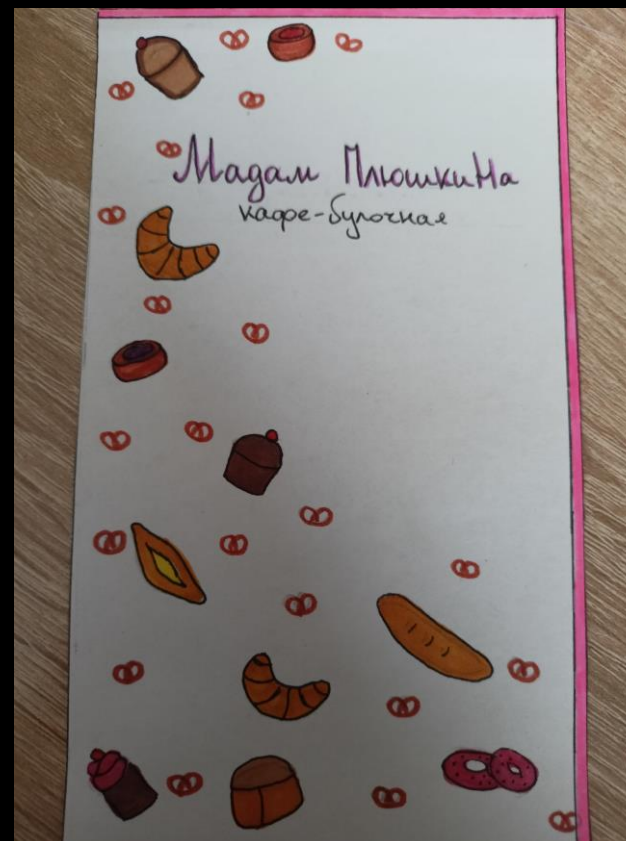 Мадам ПлюшкиНа
кафе-булочная